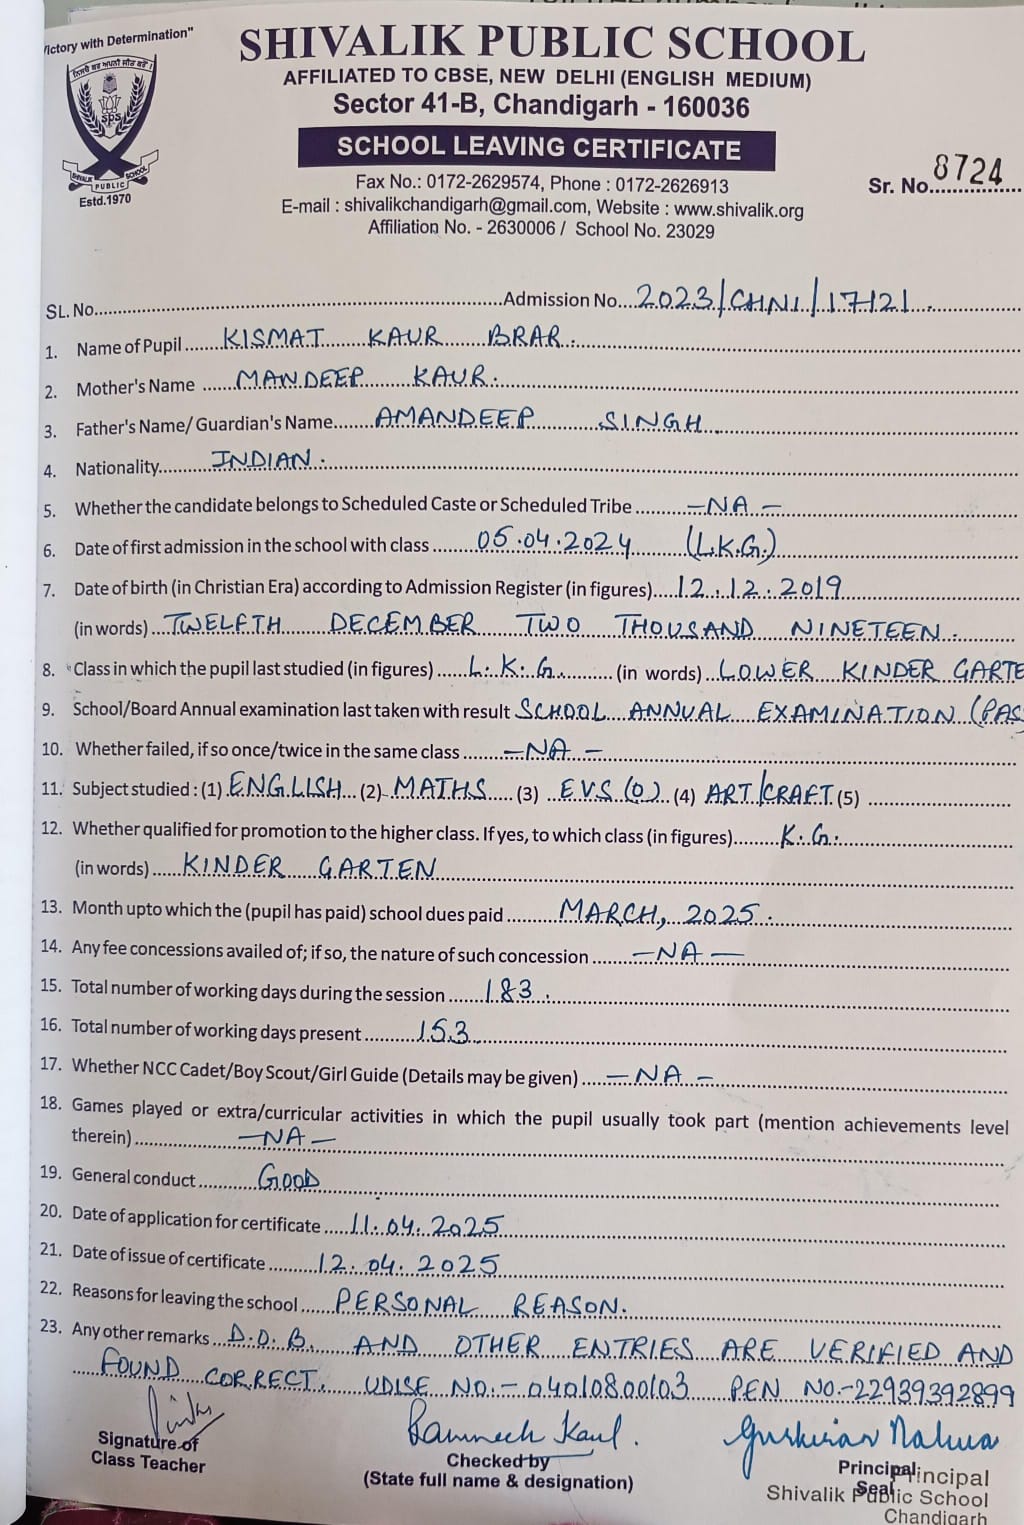 ictory with Determination"
SHIVALIK PUBLIC SCHOOL
AFFILIATED TO CBSE, NEW DELHI (ENGLISH MEDIUM)
Sector 41-B, Chandigarh - 160036
SCHOOL LEAVING CERTIFICATE
sps
SHIVALIK PUBLIC SCHOOL
Estd.1970
Fax No.: 0172-2629574, Phone : 0172-2626913
Sr. No. 8724
E-mail : shivalikchandigarh@gmail.com, Website : www.shivalik.org
Affiliation No. - 2630006 / School No. 23029
SL. No. Admission No. 2023/CHN1/17121.
1. Name of Pupil KISMAT KAUR BRAR.
2. Mother's Name MANDEEP KAUR.
3. Father's Name/ Guardian's Name AMANDEEP SINGH
4. Nationality INDIAN.
5. Whether the candidate belongs to Scheduled Caste or Scheduled Tribe -NA-
6. Date of first admission in the school with class 05.04.2024 (L.K.G.)
7. Date of birth (in Christian Era) according to Admission Register (in figures) 12.12.2019
(in words) TWELFTH DECEMBER TWO THOUSAND NINETEEN.
8. Class in which the pupil last studied (in figures) L.K.G. (in words) LOWER KINDER GARTE
9. School/Board Annual examination last taken with result SCHOOL ANNUAL EXAMINATION (PAS
10. Whether failed, if so once/twice in the same class -NA-
11. Subject studied : (1) ENGLISH (2) MATHS (3) EVS (O) (4) ART/CRAFT (5)
12. Whether qualified for promotion to the higher class. If yes, to which class (in figures) K.G.
(in words) KINDER GARTEN
13. Month upto which the (pupil has paid) school dues paid MARCH, 2025.
14. Any fee concessions availed of; if so, the nature of such concession -NA-
15. Total number of working days during the session 183.
16. Total number of working days present 153
17. Whether NCC Cadet/Boy Scout/Girl Guide (Details may be given) -NA-
18. Games played or extra/curricular activities in which the pupil usually took part (mention achievements level
therein) -NA-
19. General conduct GOOD
20. Date of application for certificate 11.04.2025
21. Date of issue of certificate 12.04.2025
22. Reasons for leaving the school PERSONAL REASON.
23. Any other remarks D.O.B. AND OTHER ENTRIES ARE VERIFIED AND
FOUND CORRECT. UDISE NO.-04010800103 PEN NO.-22939392899
Signature of
Class Teacher
Checked by
(State full name & designation)
Principal
Seal
Principal
Shivalik Public School
Chandigarh